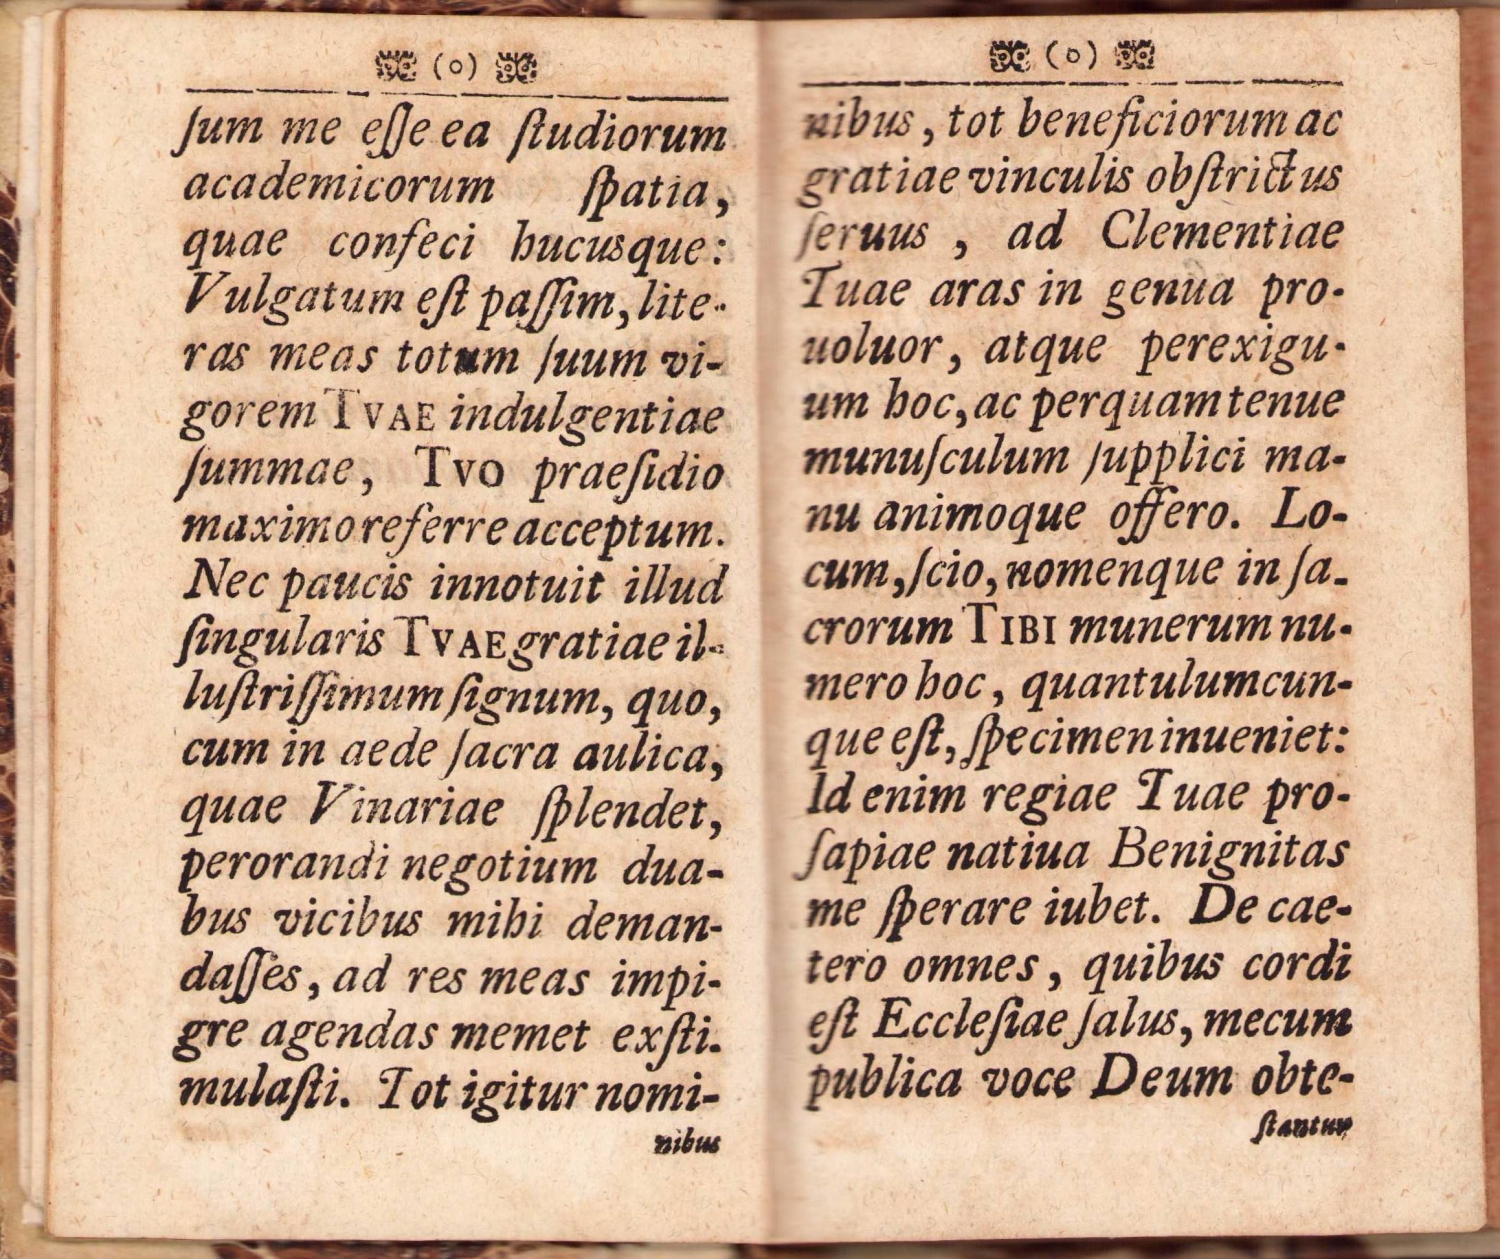 (o)
ſum me eſſe ea ſtudiorum
academicorum ſpatia,
quae confeci hucusque:
Vulgatum eſt paſſim, lite-
ras meas totum ſuum vi-
gorem TVAE indulgentiae
ſummae, TVO praeſidio
maximo referre acceptum.
Nec paucis innotuit illud
ſingularis TVAE gratiae il-
luſtriſſimum ſignum, quo,
cum in aede ſacra aulica,
quae Vinariae ſplendet,
perorandi negotium dua-
bus vicibus mihi deman-
daſſes, ad res meas impi-
gre agendas memet exſti-
mulaſti. Tot igitur nomi-
nibus
(o)
nibus, tot beneficiorum ac
gratiae vinculis obſtrictus
ſeruus, ad Clementiae
Tuae aras in genua pro-
uoluor, atque perexigu-
um hoc, ac perquam tenue
munuſculum ſupplici ma-
nu animoque offero. Lo-
cum, ſcio, nomenque in ſa-
crorum TIBI munerum nu-
mero hoc, quantulumcun-
que eſt, ſpecimen inueniet:
Id enim regiae Tuae pro-
ſapiae natiua Benignitas
me ſperare iubet. De cae-
tero omnes, quibus cordi
eſt Eccleſiae ſalus, mecum
publica voce Deum obte-
ſtantur